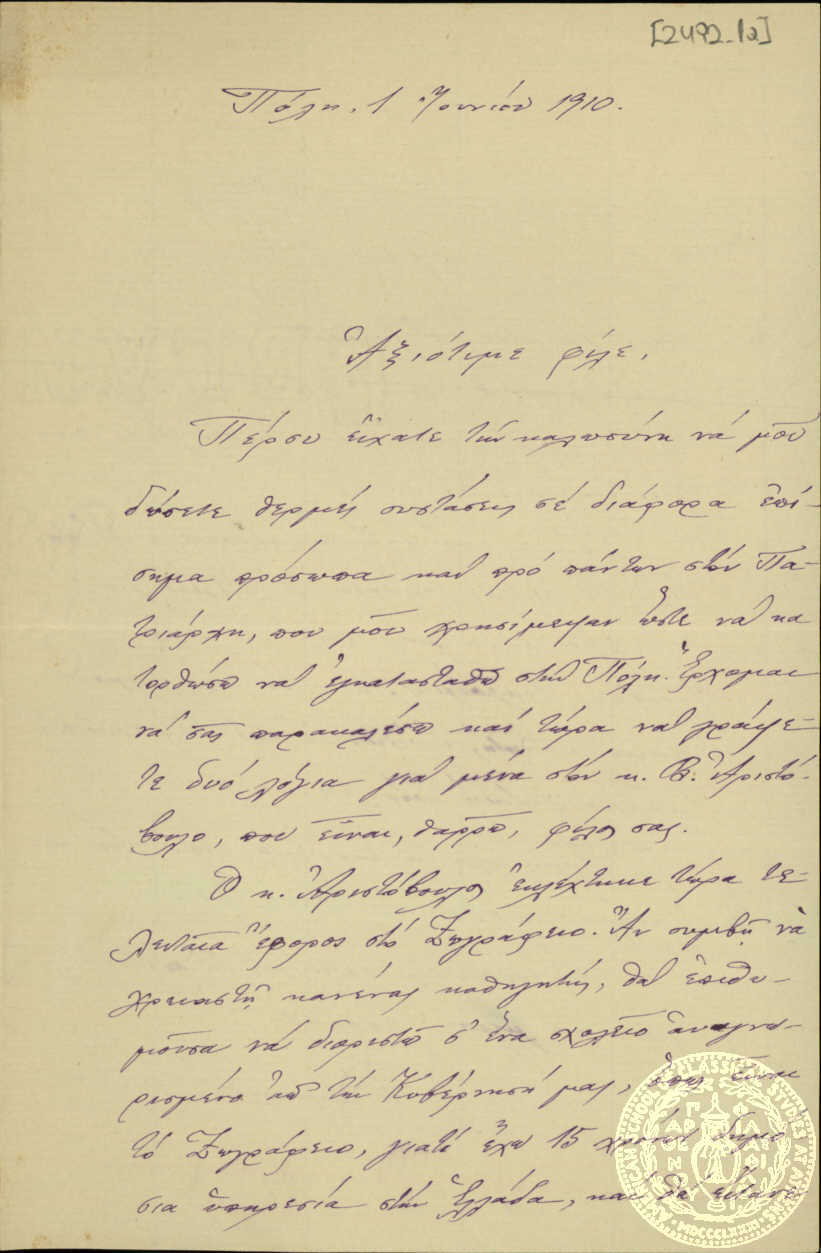 [2492_1a]
Πόλη, 1 Ἰουνίου 1910.
Ἀξιότιμε φίλε,
Πέρσυ εἴχατε τὴν καλωσύνη νά μοῦ
δώσετε θερμές συστάσεις σέ διάφορα ἐπί-
σημα πρόσωπα καί πρό πάντων στόν Πα-
τριάρχη, που μοῦ χρησίμεψαν ὥστε νά κα
τορθώσω νά ἐγκατασταθῶ στήν Πόλη. Ἔρχομαι
νά σᾶς παρακαλέσω καί τώρα νά γράψε-
τε δυό λόγια γιά μένα στόν κ. Β. Ἀριστό-
βουλο, που εἶναι, θαρρῶ, φίλος σας.
Ὁ κ. Ἀριστόβουλος ἐκλέχτηκε τώρα τε-
λευταῖα ἔφορος στό Ζωγράφειο. Ἄν συμβῇ νὰ
χρειαστῇ κανένας καθηγητής, θά ἐπιθυ-
μοῦσα νά διοριστῶ σ' ἕνα σχολεῖο ἀναγνω-
ρισμένο ἀπ τήν Κυβέρνησή μας, ὅπως εἶναι
τό Ζωγράφειο, γιατί ἔχω 15 χρονῶν δημό
σια ὑπηρεσία στήν Ἑλλάδα, καί θά
AMERICAN SCHOOL OF CLASSICAL STUDIES AT ATHENS
MDCCCLXXXI